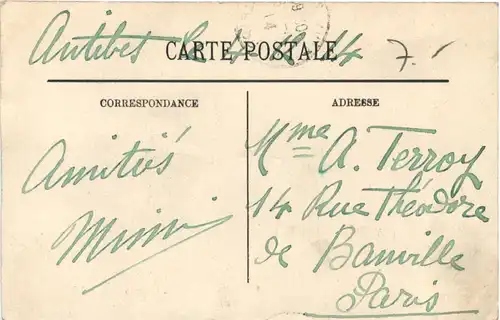 Antibes le 4 - 2 14
CARTE POSTALE
7.-
CORRESPONDANCE
ADRESSE
Amitiés
Mimi
Mme A. Terroy
14 Rue Théodore
de Banville
Paris